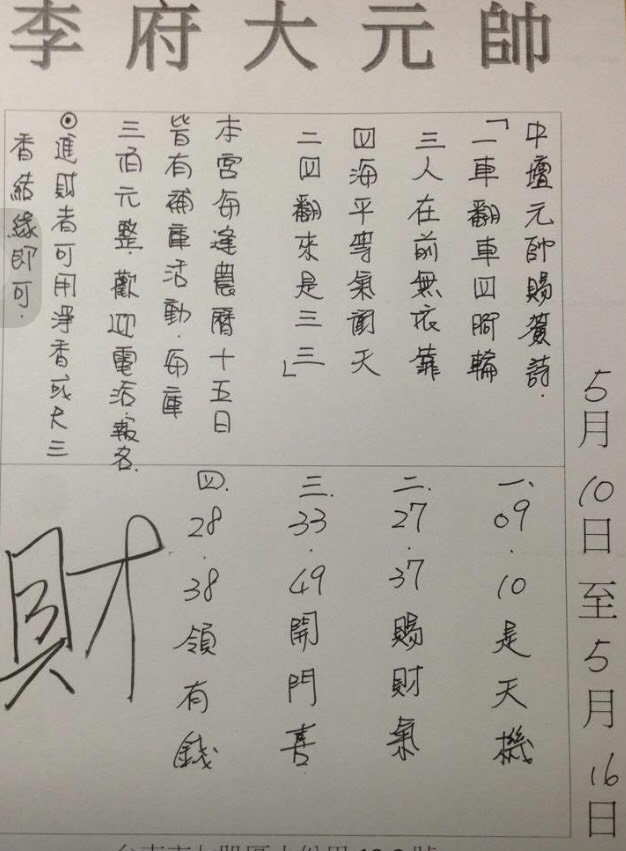 李府大元帥
5月10日至5月16日
中壇元帥賜詩.
「一車翻車四腳輪
三人在前無依靠
四海平等氣天
二四翻來是三三」
本宮每逢農曆十五日
皆有補庫活動.每庫
三佰元整.歡迎電話.報名.
◎進財者可用淨香或尺三
香結緣即可.
一、09.10是天機
二.27.37賜財氣
三.33.49開門喜
四.28.38領有錢
財